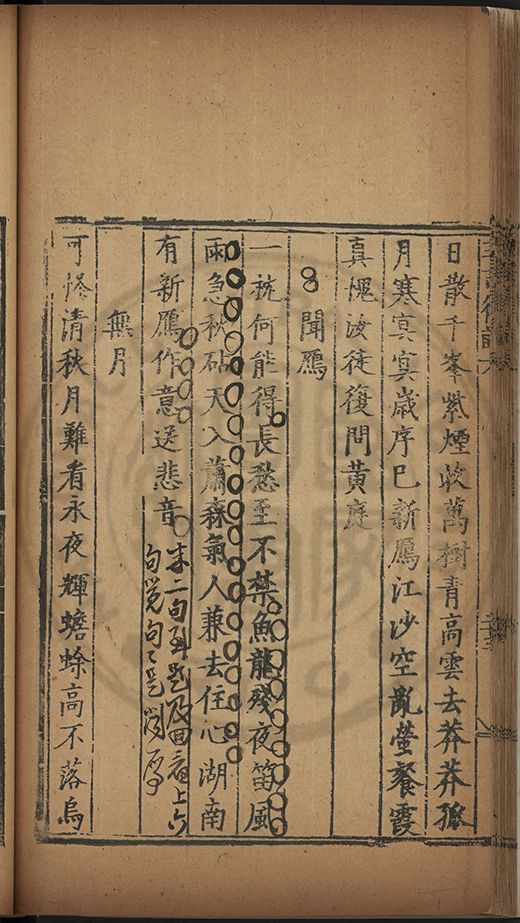 日散千峯紫煙收萬樹青高雲去莽莽孤
月寒寞寞歳序巳新鴈江沙空亂螢餐霞
真愧汝徒復問黄庭
聞鴈
一椀何能得長愁至不禁魚龍殘夜笛風
雨急秋砧天入蕭森氣人兼去住心湖南
有新鴈作意送悲音
末二句到題及回看上六
句覚句〻是聞鴈
無月
可恠清秋月難看永夜輝蟾蜍高不落烏